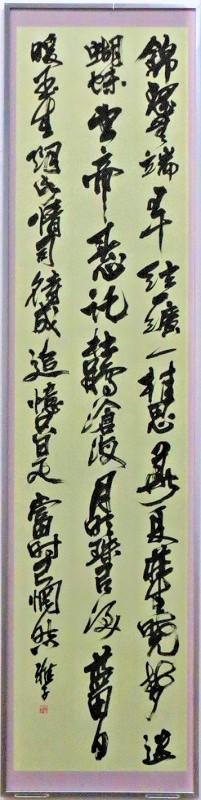 錦瑟無端五十絃一絃一柱思華年莊生曉夢迷
蝴蝶望帝春心託杜鵑滄海月明珠有淚藍田日
暖玉生煙此情可待成追憶只是當時已惘然